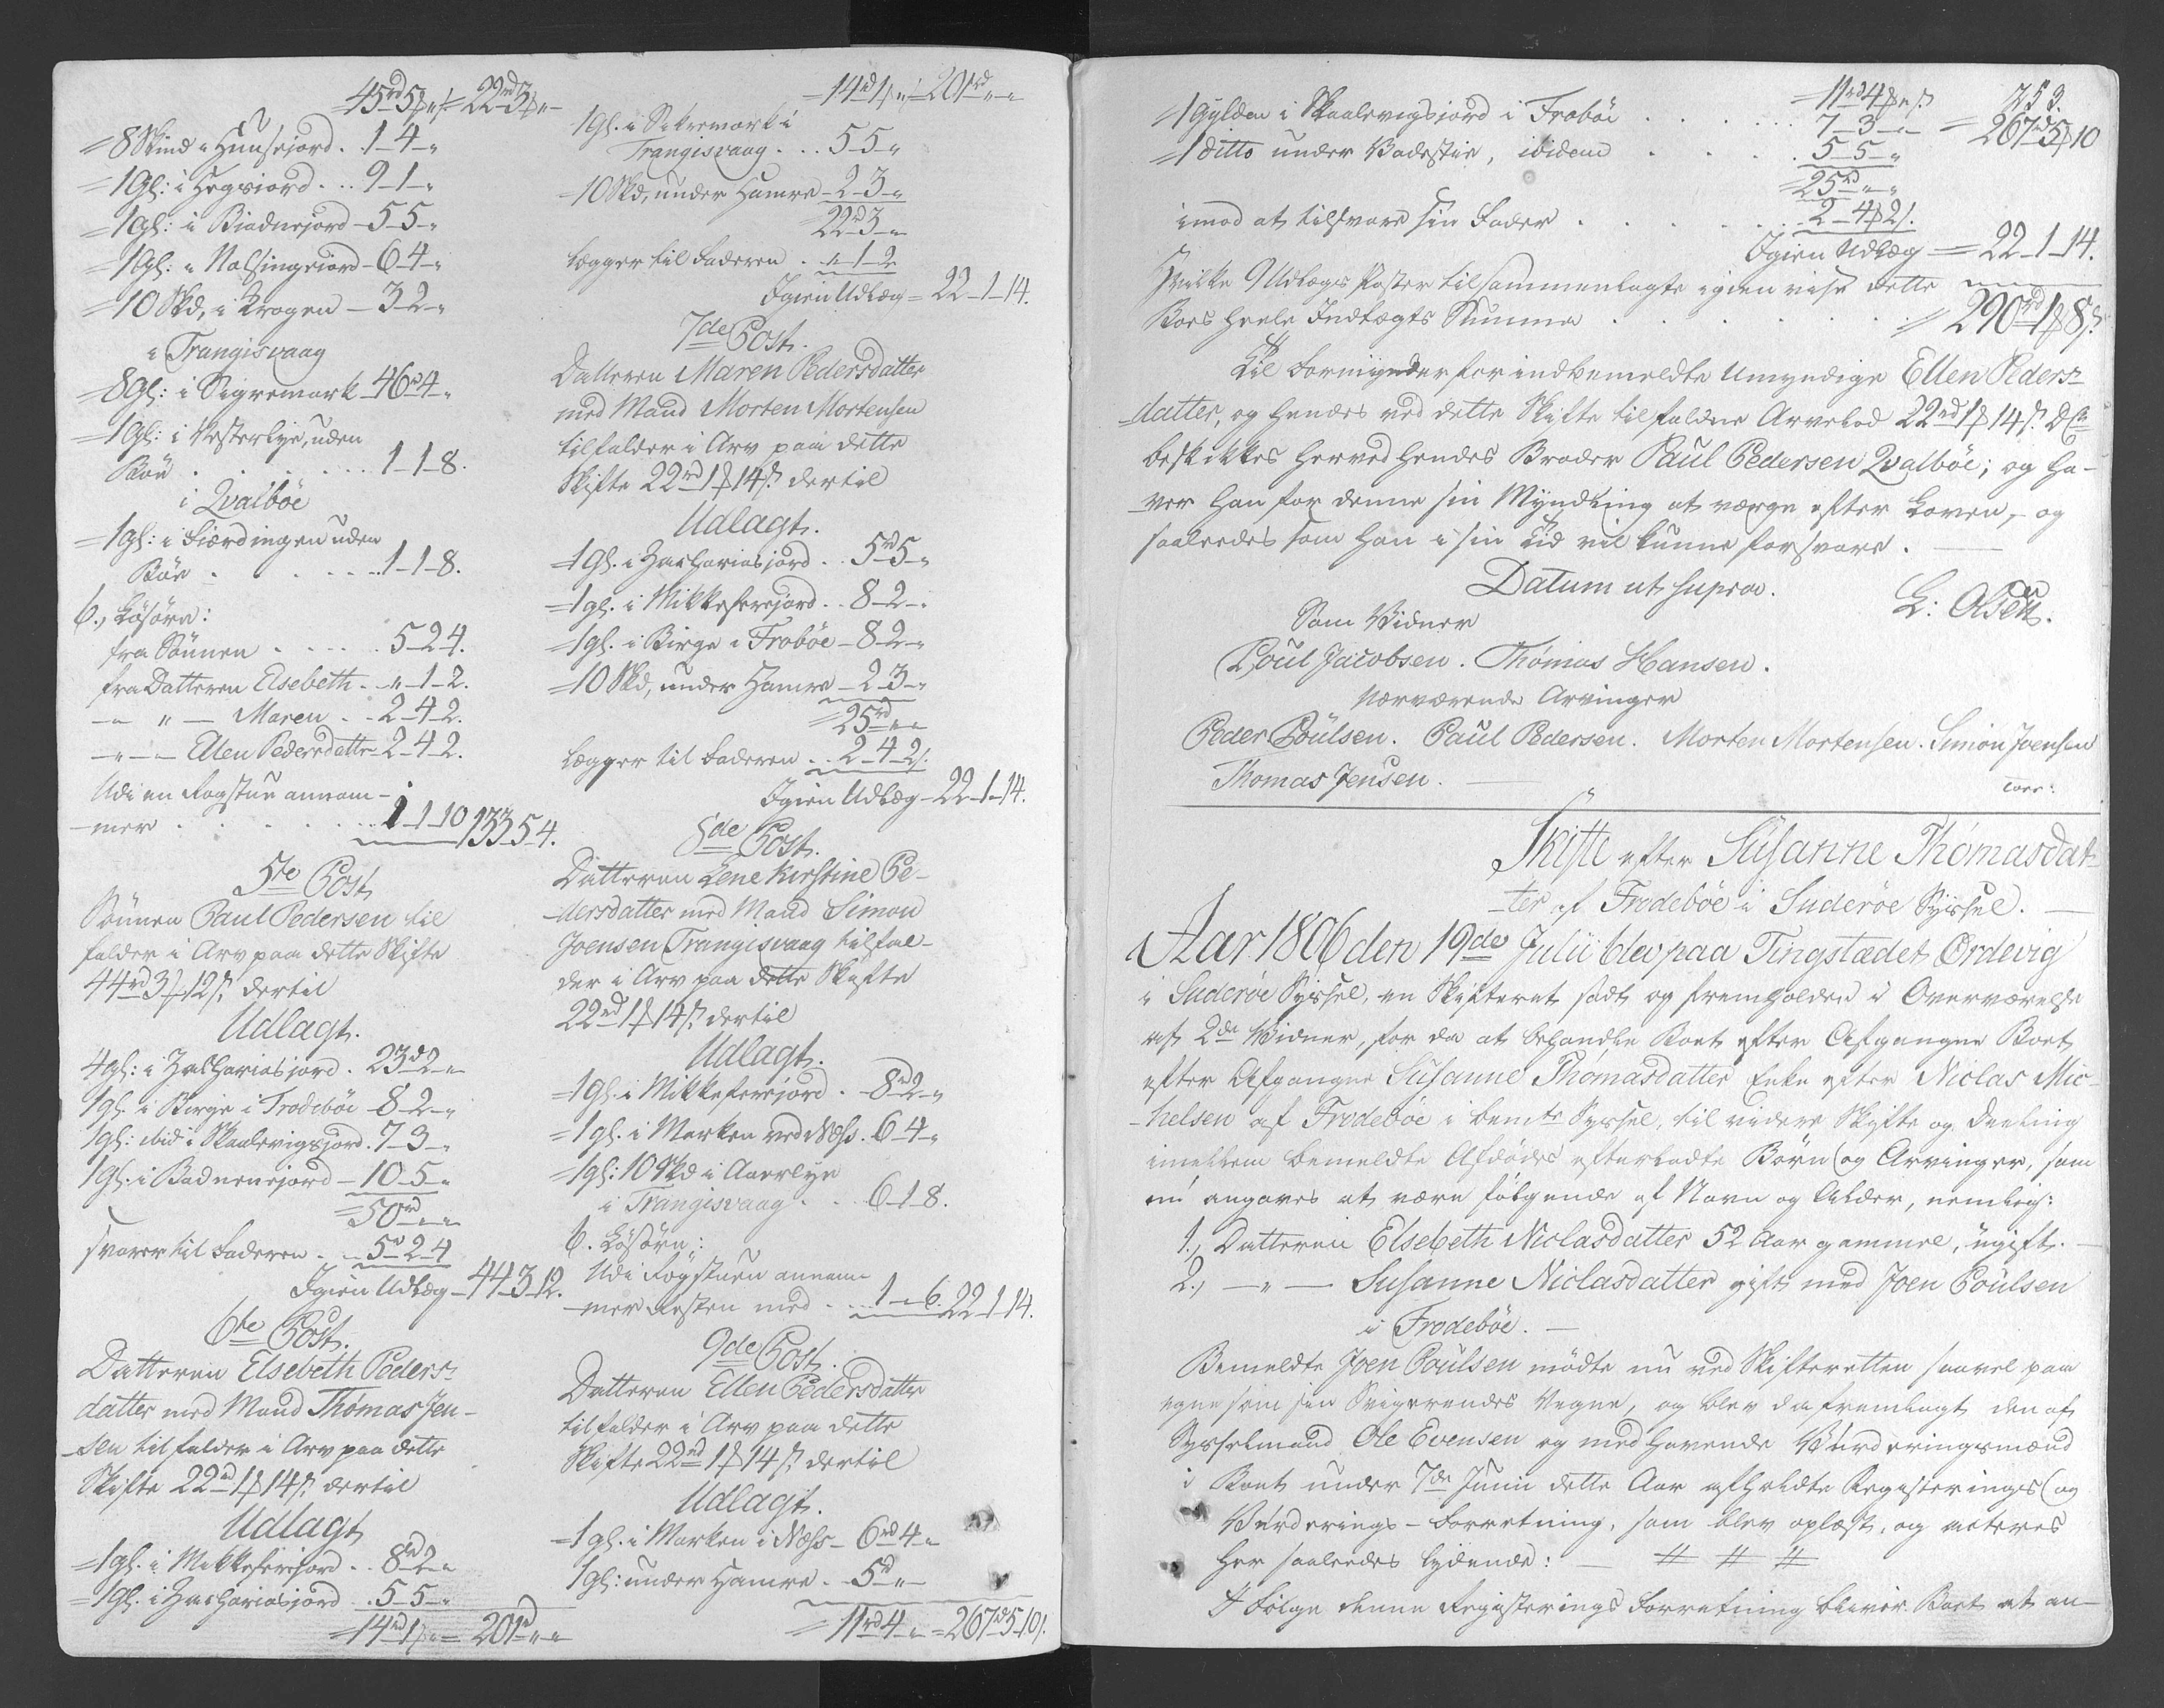 45rd 5ß „ s = 22rd 3ß „
= 8 Skind i Hunsejord . 1 - 4 - „
= 1 Gl: i Hegsiord . . . 9 - 1 - „
= 1 gl: i Biadnejord - 5 - 5 - „
= 1 gl: i Nolsingeiord - 6 - 4 - „
= 10 Skd, i Krogen - 3 - 2 - „
i Trangisvaag
= 8 Gl: i Sigremark - 46rd 4 - „
= 1 Gl: i Vesterlye, uden
Böe . . . . . . 1 - 1 - 8.
i Qvalböe
= 1 gl: i Fiærdingen uden
Böe . . . . . 1 - 1 - 8.
6., Lösöre:
fra Sönnen . . . . . 5 - 2 - 4.
fra Datteren Elsebeth . „ - 1 - 2.
- „ - Maren . . 2 - 4 - 2.
- „ - Ellen Pedersdatter 2 - 4 - 2.
Udi en Rogstue annam-
mer . . . . . . 1 - 1 - 10 133 - 5 - 4.
5te Post
Sönnen Paul Pedersen til
falder i Arv paa dette Skifte
44rd 3ß 12s, dertil
Udlagt.
4 gl: i Zachariasjord . 23rd 2 - „
1 gl. i Birge i Frodeböe - 8 - 2 - „
1 gl: ibid: i Skaalevigsjord . 7 - 3 - „
1 gl. i Badnenejord - 10 - 5 - „
= 50rd „ - „
svarer til Faderen . . 5rd 2 - 4
Igien Udlæg - 44 - 3 - 12.
6te Post.
Datteren Elsebeth Peders-
datter med Mand Thomas Jen-
sen tilfalder i Arv paa dette
Skifte 22rd 1ß 14s, dertil
Udlagt
= 1 gl. i Mikkeferejord . . 8rd 2 - „
= 1 gl. i Zachariasjord . 5 - 5 - „
= 14rd 1ß „ = 201rd „ - „
= 14rd 1ß „ = 201rd „ - „
1 gl. i Sekremark i
Trangisvaag . . . 5 - 5 - „
= 10 Skd, under Hamre - 2 - 3 - „
22rd 3 - „
lægger til Faderen . . „ - 1 - 2
Igien Udlæg = 22 - 1 - 14.
7de Post.
Datteren Maren Pedersdatter
med Mand Morten Mortensen
tilfalder i Arv paa dette
Skifte 22rd 1ß 14s, dertil
Udlagt.
= 1 gl. i Zachariasjord . . 5rd 5 - „
= 1 gl. i Mikkeferejord . . 8 - 2 - „
= 1 gl. i Birge i Froböe - 8 - 2 - „
= 10 Skd, under Hamre - 2 - 3 - „
= 25rd „ - „
lægger til Faderen . . 2 - 4 - 2s.
Igien Udlæg - 22 - 1 - 14.
8de Post.
Datteren Lene Kirstine Pe-
dersdatter med Mand Simon
Joensen Trangisvaag tilfal-
der i Arv paa dette Skifte
22rd 1ß 14s, dertil
Udlagt.
= 1 gl. i Mikkeferejord . - 8rd 2 - „
= 1 gl. i Marken ved Næss . 6 - 4 - „
= 1 gl: 10 Skd i Aaerlye
i Trangisvaag . . 6 - 1 - 8.
6. Lösöre:
Udi Rögstuen annam-
mer Resten med . . . 1 - „ - 6. 22 - 1 - 14.
9de Post.
Datteren Ellen Pedersdatter
tilfalder i Arv paa dette
Skifte 22rd 1ß 14s, dertil
Udlagt.
= 1 gl. i Marken i Næss - 6rd 4 - „
1 gl: under Hamre . - 5rd „ -
= 11rd 4 - „ = 267rd 5 - 10s.
253.
= 11rd 4ß „ s
= 1 Gylden i Skaalevigsjord i Froböe . . . . . . 7 - 3 - „ = 267rd 5ß 10
= 1 ditto under Badestue, ibidem . . . . 5 - 5 - „
= 25rd „ - „
imod at tilsvare sin Fader . . . . . . . 2 - 4ß 2s.
Igien Udlæg = 22 - 1 - 14.
Hvilke 9 Udlægs Poster tilsammenlagte igien vise dette
Boes heele Indtægts Summa . . . . . . = 290rd 1ß 8s.
Til Formynder for indbemeldte Umyndige Ellen Peders-
datter, og hendes ved dette Skifte tilfaldne Arvelod 22rd 1ß 14s. D.C.
beskikkes herved hendes Broder Paul Pedersen Qvalböe; og ha-
ver han for denne sin Myndling at værge efter Loven, og
saaledes som han i sin Tid vil kunne forsvare. —
Datum ut supra.
L: Olsen.
Som Vidner
Poul Jacobsen. Thömas Hansen.
Nærværende Arvinger
Peder Poülsen. Paul Pedersen. Morten Mortensen. Simon Joensen
Thomas Jensen. —
corr:
Skifte efter Süsanne Thömasdat-
ter af Frodeböe i Suderöe Syssel. —
Aar 1806 den 19de Julii blev paa Tingstædet Ördevig
i Suderöe Syssel, en Skifteret sadt og fremholden i Overværelse
af 2de Vidner, for da at behandle Boet efter Afgangne Boet
efter Afgangne Susanne Thömasdatter Enke efter Niclas Mic-
helsen af Frodeböe i bemte Syssel, til videre Skifte og Deeling
imellem bemeldte Afdödes efterladte Börn og Arvinger, som
nu angaves at være fölgende af Navn og Alder, nemlig:
1., Datteren Elsebeth Niclasdatter 52 Aar gammel, ugift. —
2., — „ — Susanne Niclasdatter gift med Joen Poulsen
i Frodeböe. —
Bemeldte Joen Poulsen mödte nu ved Skifteretten saavel paa
egne som sin Svigerendes Vegne, og blev da fremlagt den af
Sysselmand Ole Evensen og medhavende Vurderingsmænd
i Boet under 7de Junii dette Aar afholdte Registerings og
Vurderings-Forretning, som blev oplæst, og acteres
her saaledes lydende: — # # #
I Fölge denne Registerings Forretning bliver Boet at an-